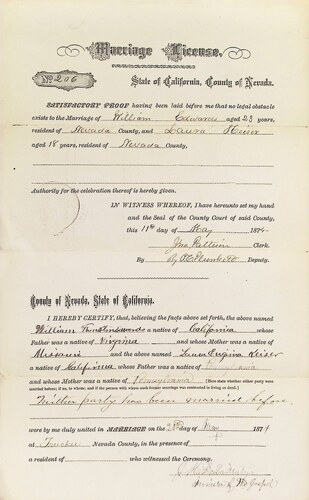 Marriage License.
No. 206
State of California, County of Nevada.
SATISFACTORY PROOF having been laid before me that no legal obstacle
exists to the Marriage of William Edwards aged 23 years,
resident of Nevada County, and Laura Keiser
aged 18 years, resident of Nevada County,
Authority for the celebration thereof is hereby given.
IN WITNESS WHEREOF, I have hereunto set my hand
and the Seal of the County Court of said County,
this 11th day of May 1874
Clerk.
By Deputy.
County of Nevada, State of California.
I HEREBY CERTIFY, that, believing the facts above set forth, the above named
William a native of California whose
Father was a native of Virginia and whose Mother was a native of
Missouri and the above named Laura Keiser
a native of California whose Father was a native of Pennsylvania
and whose Mother was a native of Pennsylvania
Neither party has been married before
were by me duly united in MARRIAGE on the day of May 1874
at Truckee Nevada County, in the presence of
a resident of who witnessed the Ceremony.
Minister of the Gospel